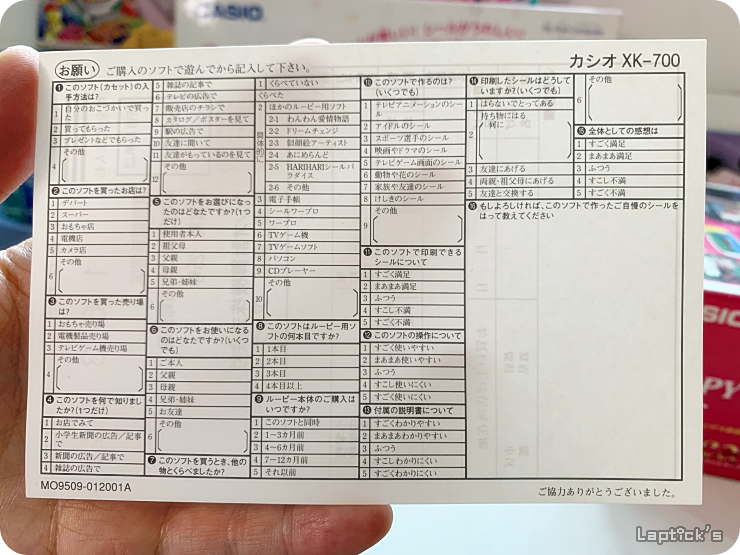 CASIO
お願い ご購入のソフトで遊んでから記入して下さい。
カシオ XK-700
❶このソフト(カセット)の入
手方法は?
1 自分のおこづかいで買っ
た
2 買ってもらった
3 プレゼントなどでもらった
4 その他
❷このソフトを買ったお店は?
1 デパート
2 スーパー
3 おもちゃ店
4 電機店
5 カメラ店
6 その他
❸このソフトを買った売り場
は?
1 おもちゃ売り場
2 電機製品売り場
3 テレビゲーム機売り場
4 その他
❹このソフトを何で知りまし
たか?(1つだけ)
1 お店でみて
2 小学生新聞の広告/記事
で
3 新聞の広告/記事で
4 雑誌の広告で
5 雑誌の記事で
6 テレビの広告で
7 販売店のチラシで
8 カタログ/ポスターを見て
9 駅の広告で
10 友達に聞いて
11 友達がもっているのを見て
12 その他
❺このソフトをお選びになっ
たのはどなたですか?(1つ
だけ)
1 使用者本人
2 祖父母
3 父親
4 母親
5 兄弟・姉妹
6 その他
❻このソフトをお使いになる
のはどなたですか?(いくつ
でも)
1 ご本人
2 父親
3 母親
4 兄弟・姉妹
5 お友達
6 その他
❼このソフトを買うとき、他の
物とくらべましたか?
1 くらべていない
くらべた
具体的に
2 ほかのルーピー用ソフト
2-1 わんわん愛情物語
2-2 ドリームチェンジ
2-3 似顔絵アーティスト
2-4 あにめらんど
2-5 HARIHARIシールパ
ラダイス
2-6 その他
3 電子手帳
4 シールワープロ
5 ワープロ
6 TVゲーム機
7 TVゲームソフト
8 パソコン
9 CDプレーヤー
10 その他
❽このソフトはルーピー用ソ
フトの何本目ですか?
1 1本目
2 2本目
3 3本目
4 4本目以上
❾ルーピー本体のご購入は
いつですか?
1 このソフトと同時
2 1〜3カ月前
3 4〜6カ月前
4 7〜12カ月前
5 それ以前
❿このソフトで作るのは?
(いくつでも)
1 テレビアニメーションのシ
ール
2 アイドルのシール
3 スポーツ選手のシール
4 映画やドラマのシール
5 テレビゲーム画面のシール
6 動物や花のシール
7 家族や友達のシール
8 けしきのシール
9 その他
⓫このソフトで印刷できる
シールについて
1 すごく満足
2 まあまあ満足
3 ふつう
4 すこし不満
5 すごく不満
⓬このソフトの操作について
1 すごく使いやすい
2 まあまあ使いやすい
3 ふつう
4 すこし使いにくい
5 すごく使いにくい
⓭付属の説明書について
1 すごくわかりやすい
2 まあまあわかりやすい
3 ふつう
4 すこしわかりにくい
5 すごくわかりにくい
⓮印刷したシールはどうして
いますか?(いくつでも)
1 はらないでとってある
2 持ち物にはる
何に
3 友達にあげる
4 両親・祖父母にあげる
5 友達と交換する
6 その他
⓯全体としての感想は
1 すごく満足
2 まあまあ満足
3 ふつう
4 すこし不満
5 すごく不満
⓰もしよろしければ、このソフトで作ったご自慢のシールを
はって教えてください
MO9509-012001A
ご協力ありがとうございました。
Laptick's